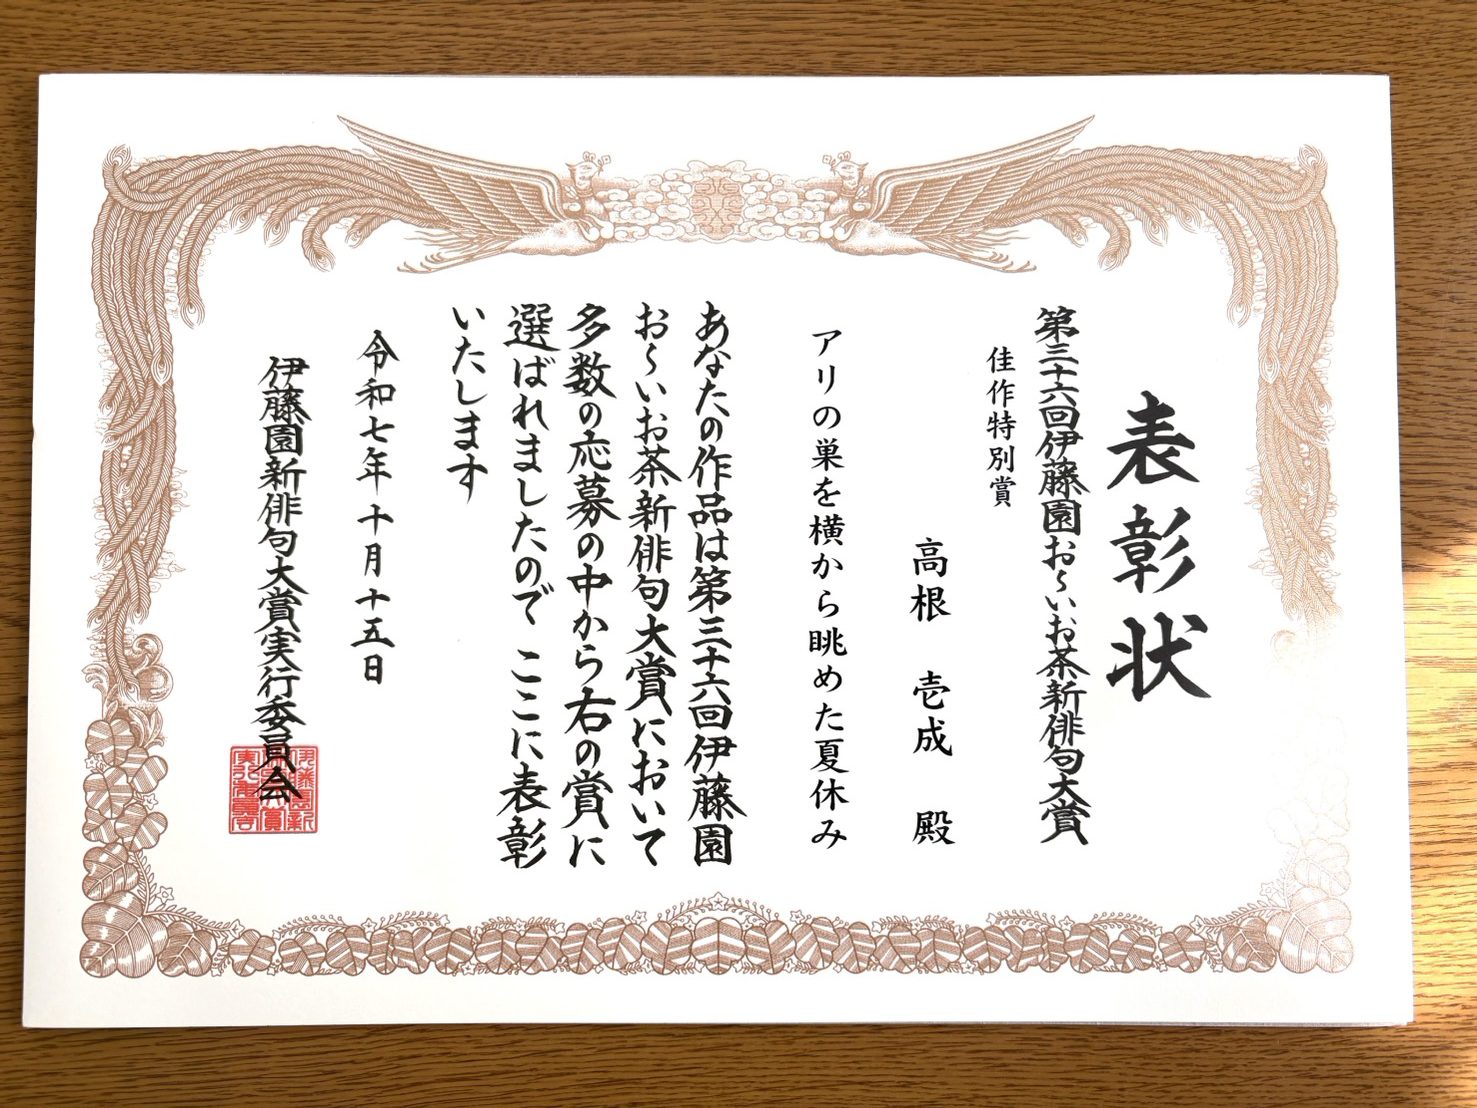 表彰状
第三十六回伊藤園お〜いお茶新俳句大賞
佳作特別賞
高根 壱成 殿
アリの巣を横から眺めた夏休み
あなたの作品は第三十六回伊藤園
お〜いお茶新俳句大賞において
多数の応募の中から右の賞に
選ばれましたので ここに表彰
いたします
令和七年十月十五日
伊藤園新俳句大賞実行委員会